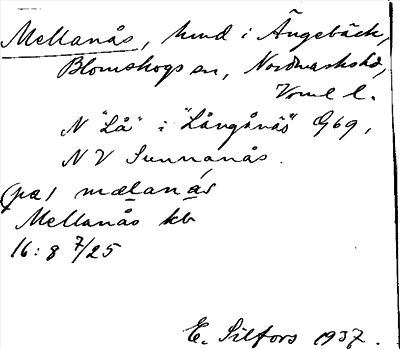 Mellanås, hmd i Ängebäck,
Blomskogs sn, Nordmarks hd,
Vrml l.
N "Lå" i "Långånäs" G69,
NV Sunnanås.
(på) mælanås
Mellanås kb
16:8 7/25
E. Silfors 1937.